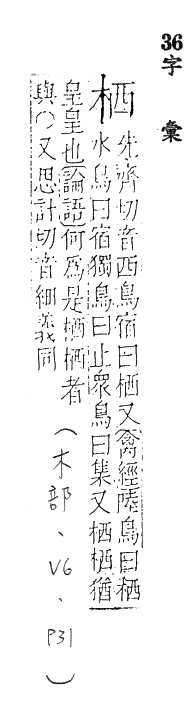 36
字彙
栖 先齊切音西鳥宿曰栖又禽經陸鳥曰栖
水鳥曰宿獨鳥曰止衆鳥曰集又栖栖猶
皇皇也論語何爲是栖栖者
與〇又思計切音細義同
(木部、V6、P31)